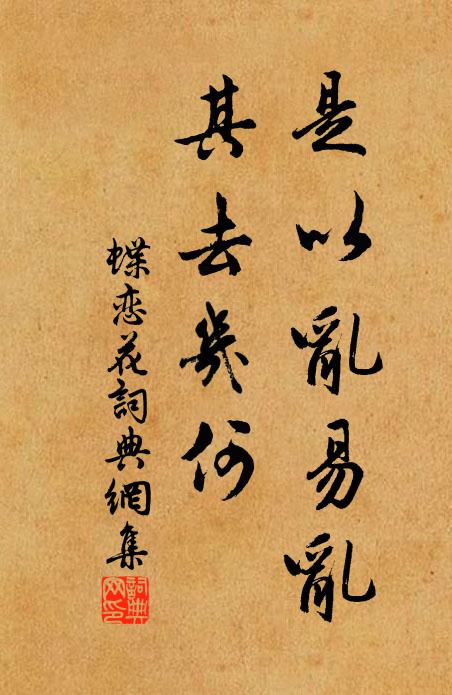 是以亂易亂
其去幾何
蝶恋花詞典網集
詞典
网印